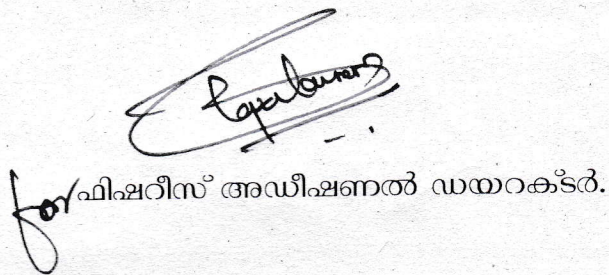 for ഫിഷറീസ് അഡീഷണൽ ഡയറക്ടർ.